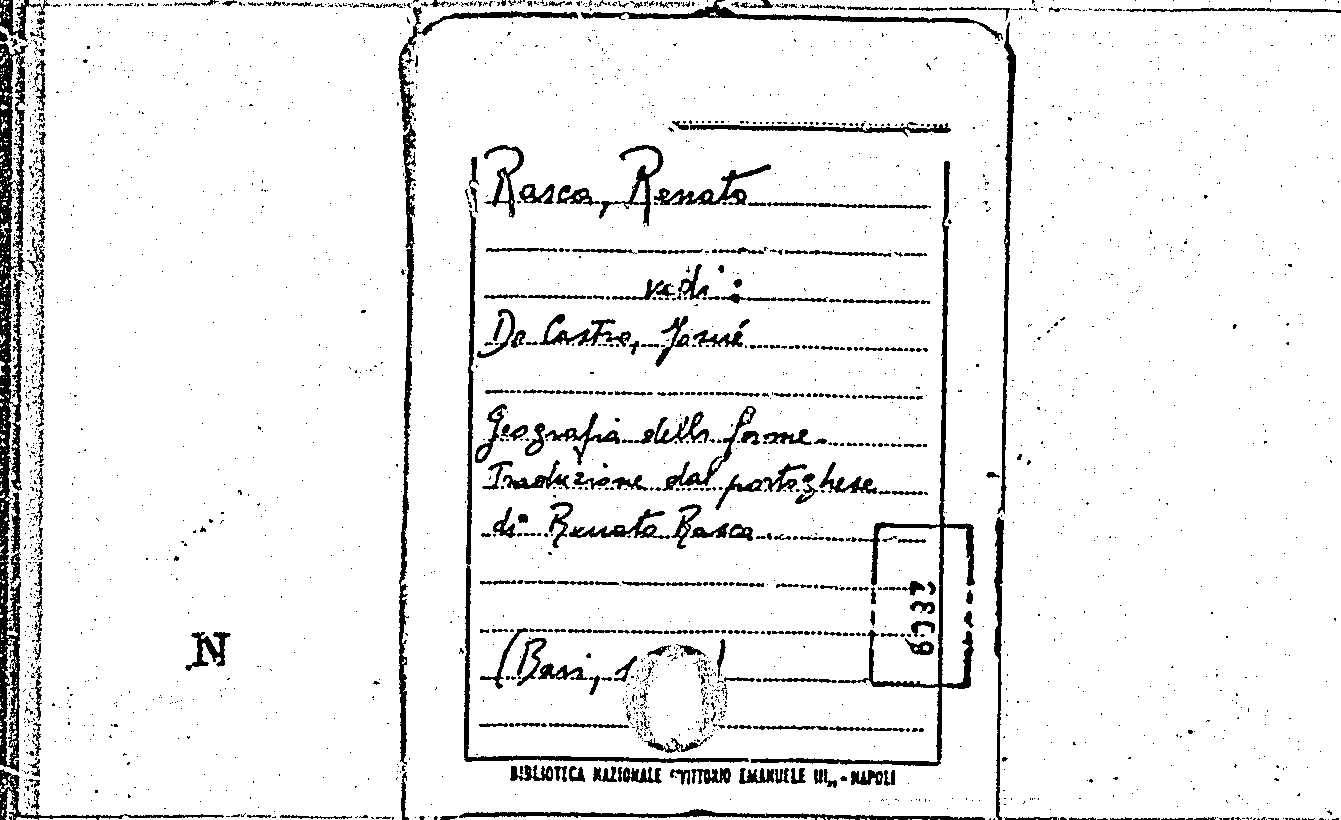 Rasca, Renato
vedi:
De Castro, Josué
Geografia della fame.
Traduzione dal portoghese
di Renato Rasca.
(Bari, 1 )
6033
N
BIBLIOTECA NAZIONALE "VITTORIO EMANUELE III„ - NAPOLI